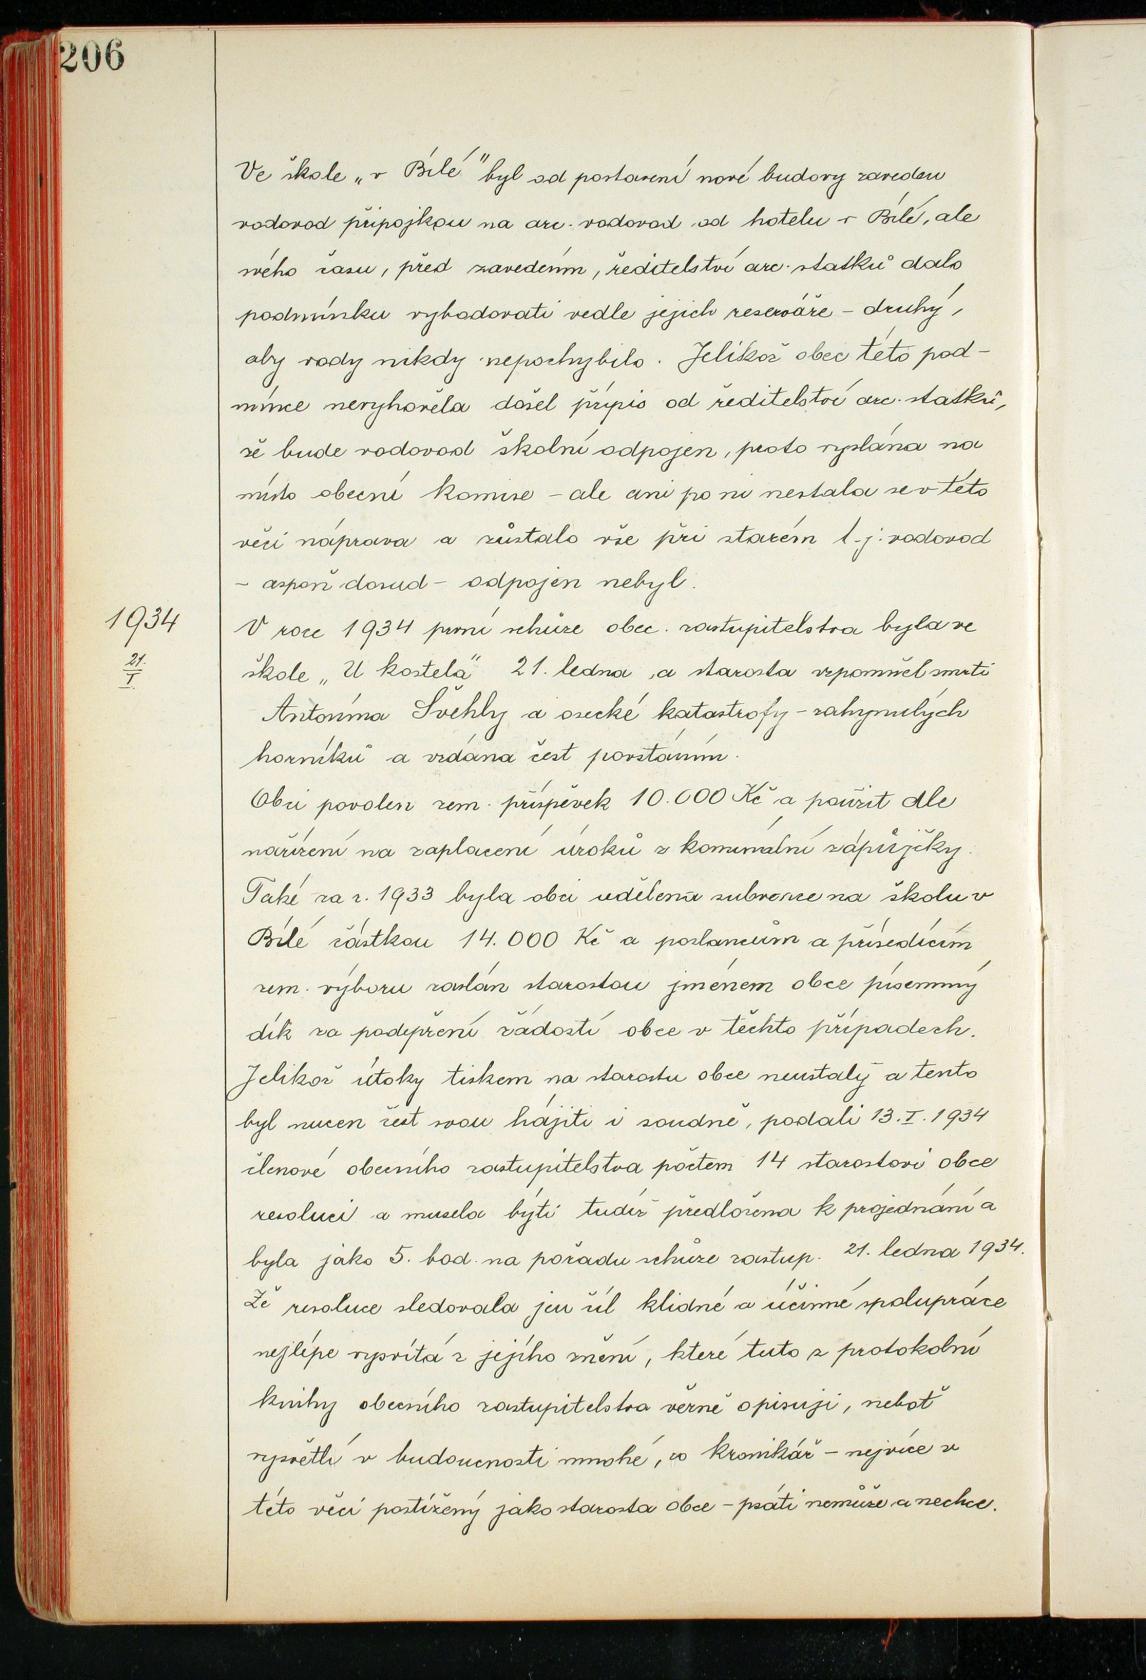 206
Ve škole „v Bílé" byl od postavení nové budovy zaveden
vodovod přípojkou na arc. vodovod od hotelu v Bílé, ale
svého času, před zavedením, ředitelství arc. statků dalo
podmínku vybudovati vedle jejich reserváře – druhý,
aby vody nikdy nepochybilo. Jelikož obec této pod-
mínce nevyhověla došel přípis od ředitelství arc. statků,
že bude vodovod školní odpojen, proto vyslána na
místo obecní komise – ale ani po ní nestala se v této
věci náprava a zůstalo vše při starém t. j. vodovod
– aspoň dosud – odpojen nebyl.
1934
21.
I.
V roce 1934 první schůze obec. zastupitelstva byla ve
škole „U kostela" 21. ledna, a starosta vzpomněl smrti
Antonína Švehly a osecké katastrofy – zahynulých
horníků a vzdána čest povstáním.
Obci povolen zem. příspěvek 10.000 Kč a použit dle
nařízení na zaplacení úroků z komunální zápůjčky.
Také za r. 1933 byla obci udělena subvence na školu v
Bílé částkou 14.000 Kč a poslancům a přísedícím
zem. výboru zaslán starostou jménem obce písemný
dík za podepření žádostí obce v těchto případech.
Jelikož útoky tiskem na starostu obce neustaly a tento
byl nucen čest svou hájiti i soudně, podali 13. I. 1934
členové obecního zastupitelstva počtem 14 starostovi obce
resoluci a musela býti tudíž předložena k projednání a
byla jako 5. bod na pořadu schůze zastup. 21. ledna 1934.
Že resoluce sledovala jen cíl klidné a účinné spolupráce
nejlépe vysvítá z jejího znění, které tuto z protokolní
knihy obecního zastupitelstva věrně opisuji, neboť
vysvětlí v budoucnosti mnohé, co kronikář – nejvíce v
této věci postižený jako starosta obce – psáti nemůže a nechce.